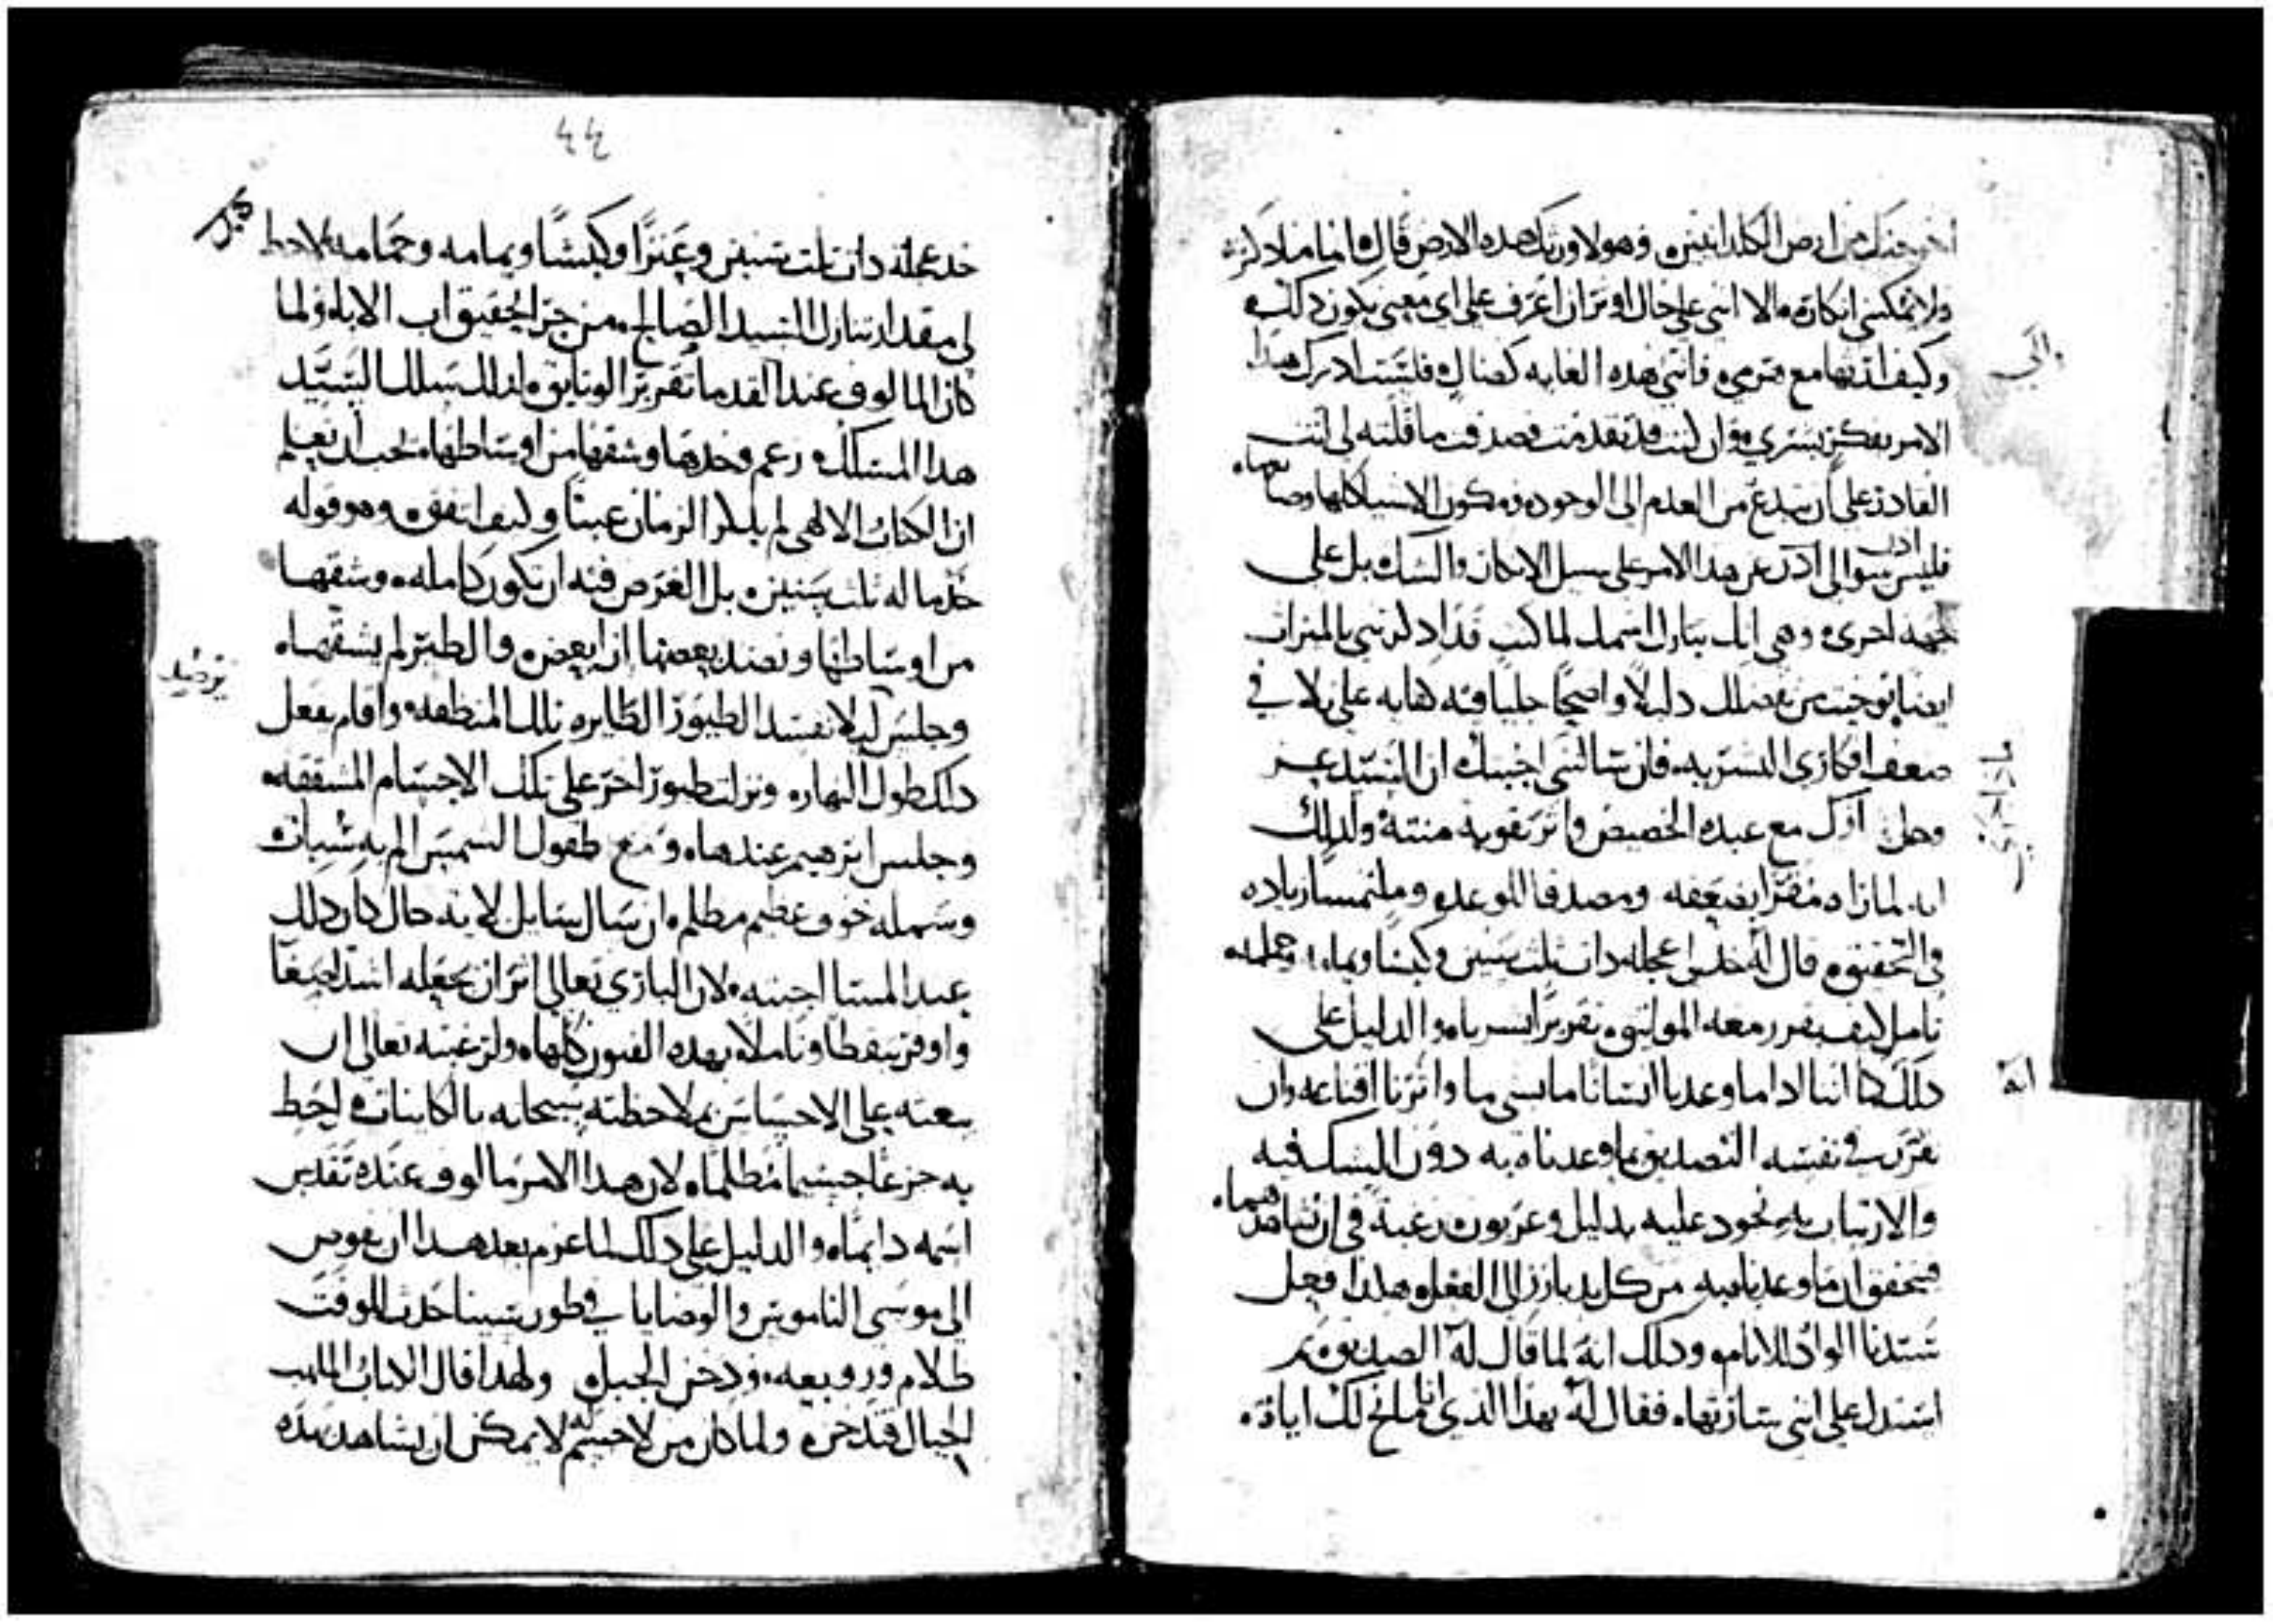 اخرجتك من ارض الكلدانيين وهولاورتك هده الارض قال اما ما دكرته
ولا يمكنني انكاره الا انني على حال اوتر ان اعرف على اي معنى يكون دلك
وكيف ارثها مع هرمي فانني هده الغايه كضال فلست ادرك هدا
الامر بفكر بشري وان كنت قد تقدمت فصدقت ما قلته لي لانك
القادر على ان تبدع من العدم الى الوجود وتكون الاشيا كلها وصانعها
فليس سوالي ادن عن هدا الامر على سبيل الامكان والشك بل على
جهه اخرى وهي انك تبارك اسمك لما كنت قد ادكرتني بالميراث
ايضا توخيت من فضلك دليلاً واضحاً جلياً فيه كفايه على تلافي
ضعف افكاري البشريه فان سالتني اجبتك ان السيد
وحل ادراك مع عبده الخصيص واثر تقويه منته ولدلك
انه لما راه مقراً بضعفه ومصدقا للوعد وملتمساً زياده
في التحقيق قال له خد لي عجله دات ثلث سنين وكبشاً ويمامه وحمامه
تامل كيف يقرر معه المواثيق تقريراً بشرياً والدليل على
دلك هو اننا ادا ما وعدنا انسانا ما بشي ما واثرنا اقناعه وان
نقرر في نفسه التصديق بما وعدناه به دون الشك فيه
والارتياب به نجود عليه بدليل وعربون رغبة في ان يشاهدهما
فيتحقق ان ما وعدنا به من كل بد بارز الى الفعل وهكدا فعل
سيدنا الواد للانام ودلك انه لما قال له الصديق بم
استدل على انني سارثها فقال له بهدا الدي انا مانح لك اياه
والى
انه
٤٤
خد عجلة دات ثلث سنين وعنزاً وكبشاً ويمامه وحمامه لاحظ
لي مقدار تنازل السيد الصالح من جرا الحقيق اب الاباء ولما
كان المالوف عند القدما تقرير الوثايق لدلك سلك السيد
هدا المسلك زعم وخدها وشقها من اوساطها يجب ان نعلم
ان الكتاب الالاهي لم يدكر الزمان عبثاً وكيف اتفق وهو قوله
خد ما له ثلث سنين بل الغرض فيه ان تكون كامله وشقها
من اوساطها ونضد بعضها ازا بعض والطير لم يشقها
وجلس ليلا تفسد الطيور الطايره تلك المنظفه واقام يفعل
دلك طول النهار ونزلت طيور اخر على تلك الاجسام المشققه
وجلس ابرهيم عندها ومع طفول الشمس الم به سبات
وشمله خوف عظيم مظلم ان سال سايل لايه حال كان دلك
عند المسا اجبته لان الباري تعالى اثر ان يجعله اشد اصغا
واوفر تيقظا وتاملا بهده الفنون كلها ولرغبته تعالى ان
يبعثه على الاحساس بملاحظته سبحانه بالكاينات لحظ
به جزعا جسيما مظلماً لان هدا الامر مالوف عنده تقدس
اسمه دايماً والدليل على دلك لما عزم بعد هدا ان يفوض
الى موسى الناموس والوصايا في طور سينا حدث للوقت
ظلام وزوبعه ودخن الجبل ولهدا قال الكتاب الملهب
الجبال فتدخن ولما كان من لا جسم له لا يمكن ان يشاهد بهده
ترصيد